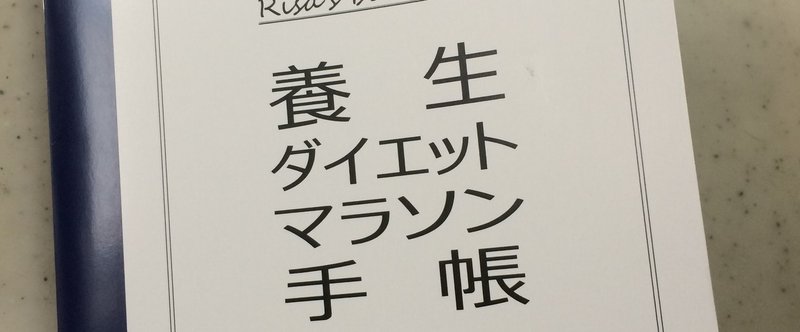 Risa's
養生
ダイエット
マラソン
手帳